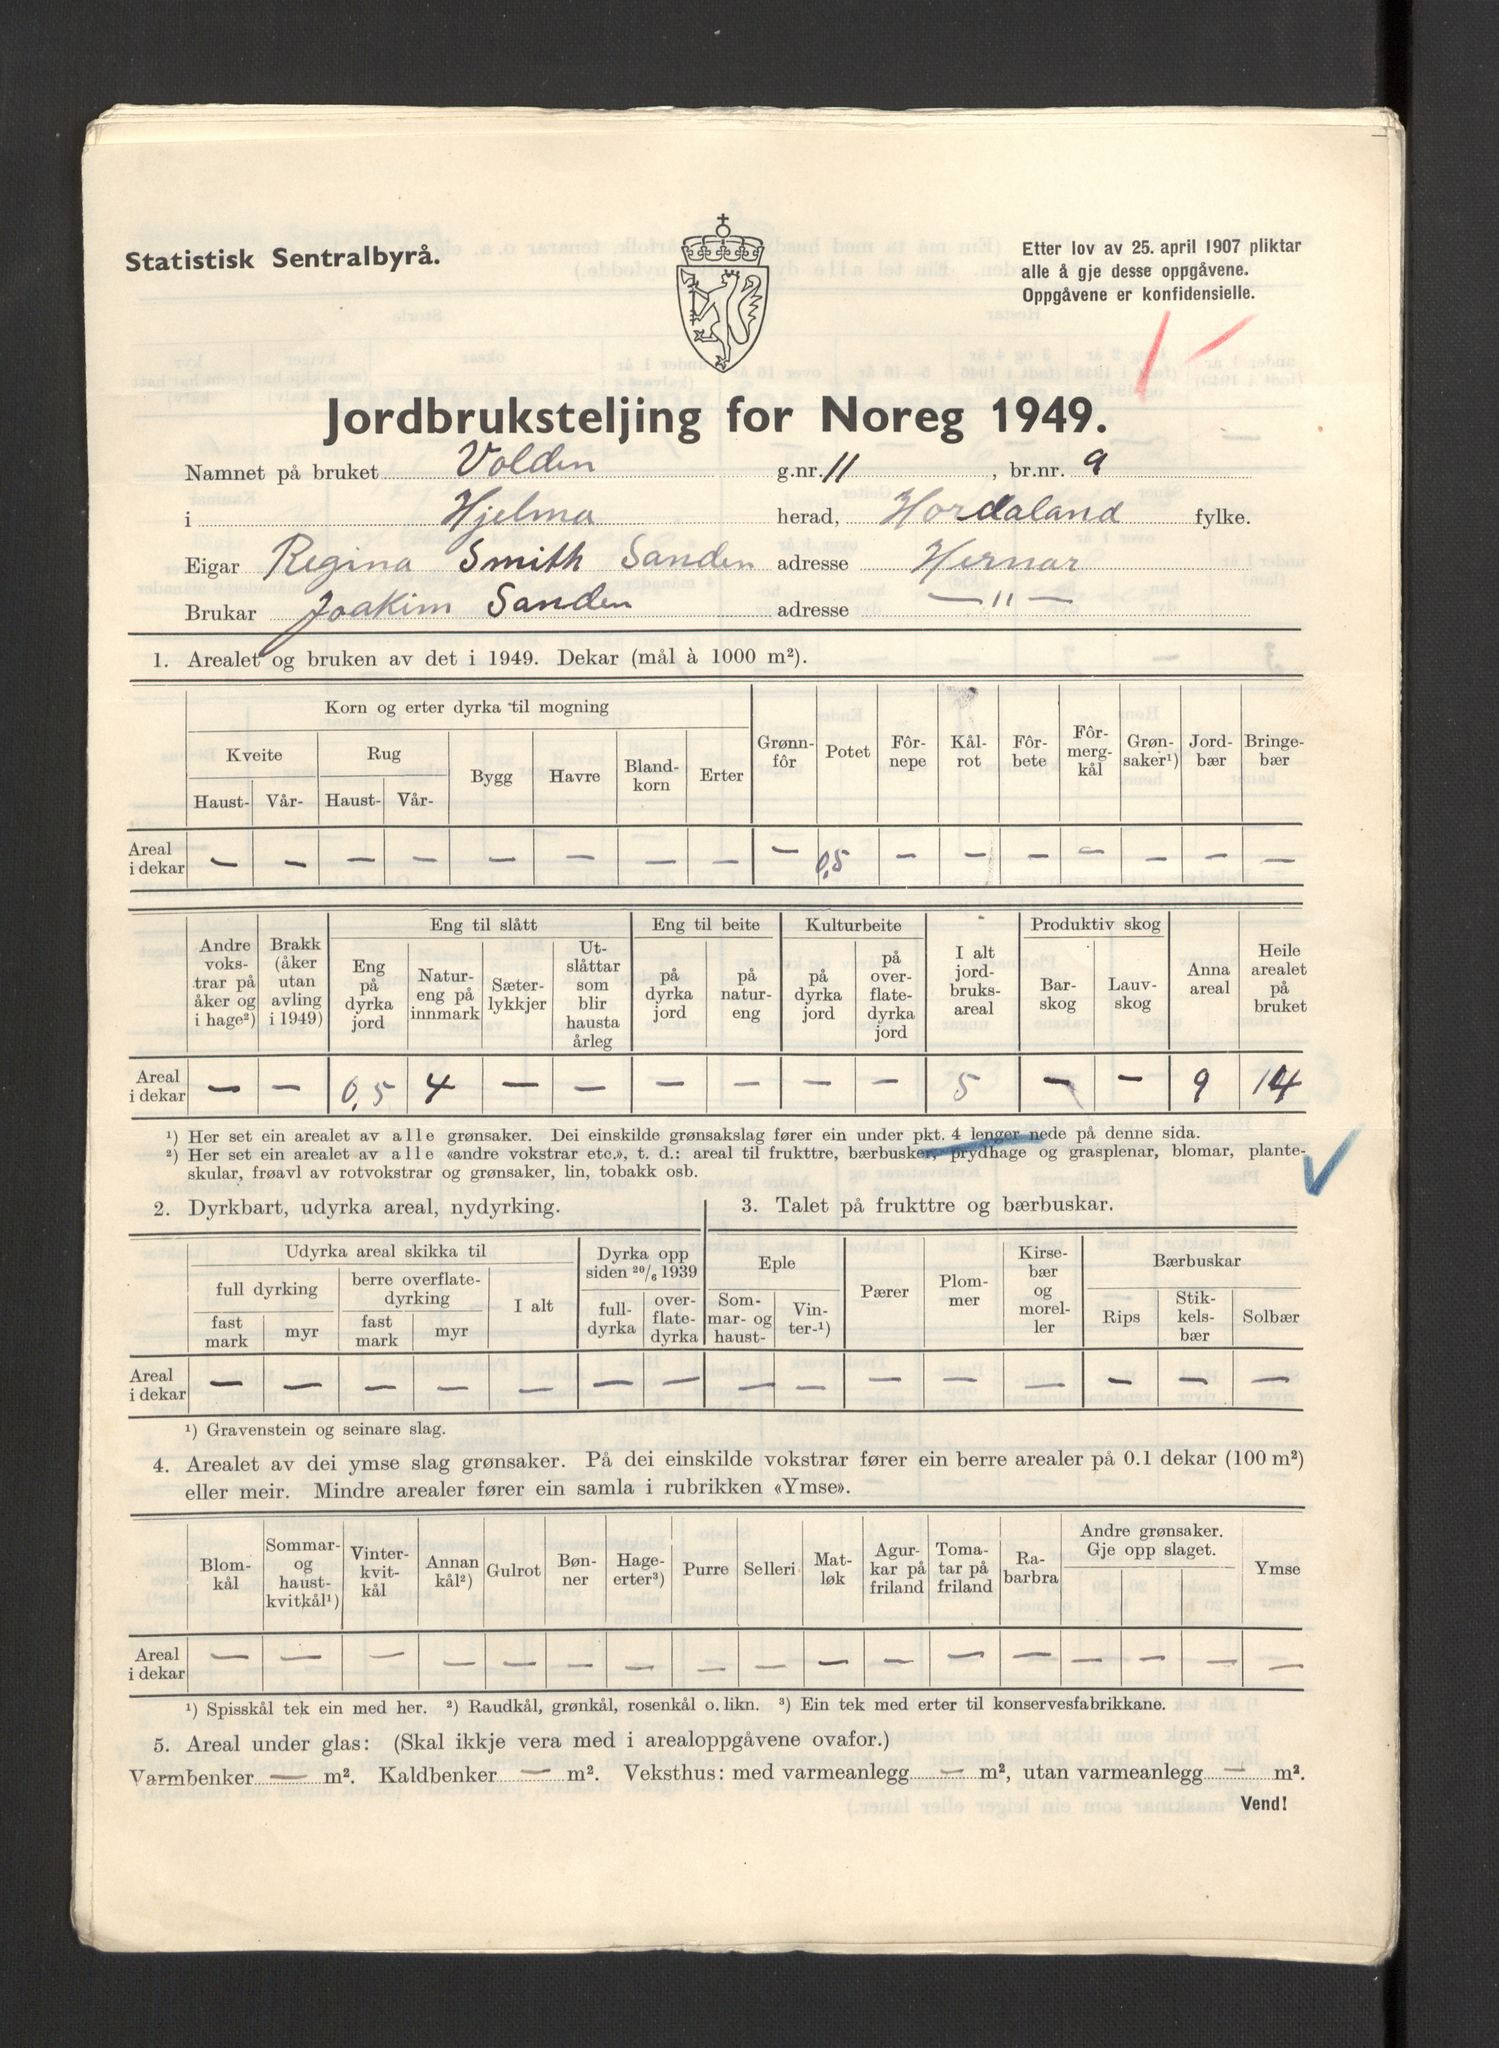 Statistisk Sentralbyrå.
Etter lov av 25. april 1907 pliktar
alle å gje desse oppgåvene.
Oppgåvene er konfidensielle.
Jordbruksteljing for Noreg 1949.
Namnet på bruket Volden g.nr. 11, br.nr. 9
i Hjelma herad, Hordaland fylke.
Eigar Regina Smith Sanden adresse Hernar
Brukar Joakim Sanden adresse — " —
1. Arealet og bruken av det i 1949. Dekar (mål à 1000 m²).
Korn og erter dyrka til mogning
Kveite Rug Bygg Havre Bland-korn Erter Grønn-fôr Potet Fôr-nepe Kål-rot Fôr-bete Fôr-mergkål Grøn-saker¹) Jord-bær Bringe-bær
Haust- Vår- Haust- Vår-
Areal i dekar — — — — — — — — — 0,5 — — — — — — —
Eng til slått Eng til beite Kulturbeite Produktiv skog
Andre vokstrar på åker og i hage²) Brakk (åker utan avling i 1949) Eng på dyrka jord Natureng på innmark Sæter-lykkjer Ut-slåttar som blir hausta årleg på dyrka jord på natur-eng på dyrka jord på over-flate-dyrka jord I alt jord-bruks-areal Bar-skog Lauv-skog Anna areal Heile arealet på bruket
Areal i dekar — — 0,5 4 — — — — — — 5 — — 9 14
¹) Her set ein arealet av alle grønsaker. Dei einskilde grønsakslag fører ein under pkt. 4 lenger nede på denne sida.
²) Her set ein arealet av alle «andre vokstrar etc.», t. d.: areal til frukttre, bærbusker, prydhage og grasplenar, blomar, plante-
skular, frøavl av rotvokstrar og grønsaker, lin, tobakk osb.
2. Dyrkbart, udyrka areal, nydyrking.
3. Talet på frukttre og bærbuskar.
Udyrka areal skikka til Dyrka opp siden 20/6 1939 Eple Pærer Plom-mer Kirse-bær og morel-ler Bærbuskar
full dyrking berre overflate-dyrking I alt full-dyrka over-flate-dyrka Som-mar- og haust- Vin-ter-¹) Rips Stik-kels-bær Solbær
fast mark myr fast mark myr
Areal i dekar — — — — — — — — — — — — — — —
¹) Gravenstein og seinare slag.
4. Arealet av dei ymse slag grønsaker. På dei einskilde vokstrar fører ein berre arealer på 0.1 dekar (100 m²)
eller meir. Mindre arealer fører ein samla i rubrikken «Ymse».
Blom-kål Sommar- og haust-kvitkål¹) Vinter-kvit-kål Annan kål²) Gulrot Bøn-ner Hage-erter³) Purre Selleri Mat-løk Agur-kar på friland Toma-tar på friland Ra-barbra Andre grønsaker. Gje opp slaget. Ymse
Areal i dekar — — — — — — — — — — — — — — — — —
¹) Spisskål tek ein med her. ²) Raudkål, grønkål, rosenkål o. likn. ³) Ein tek med erter til konservesfabrikkane.
5. Areal under glas: (Skal ikkje vera med i arealoppgåvene ovafor.)
Varmbenker — m². Kaldbenker — m². Veksthus: med varmeanlegg — m², utan varmeanlegg — m².
Vend!